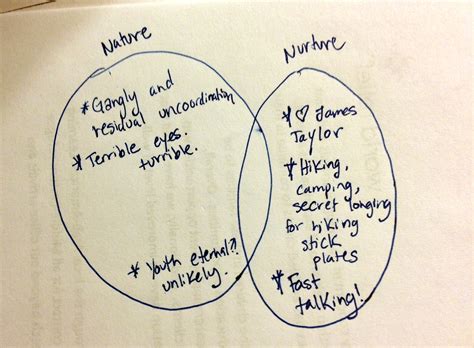 Nature
* Gangly and
residual uncoordination
* Terrible eyes.
turrible.
* Youth eternal?!
unlikely.
Nurture
* ♡ James
Taylor
* Hiking,
camping,
secret longing
for hiking
stick
plates
* Fast
talking!